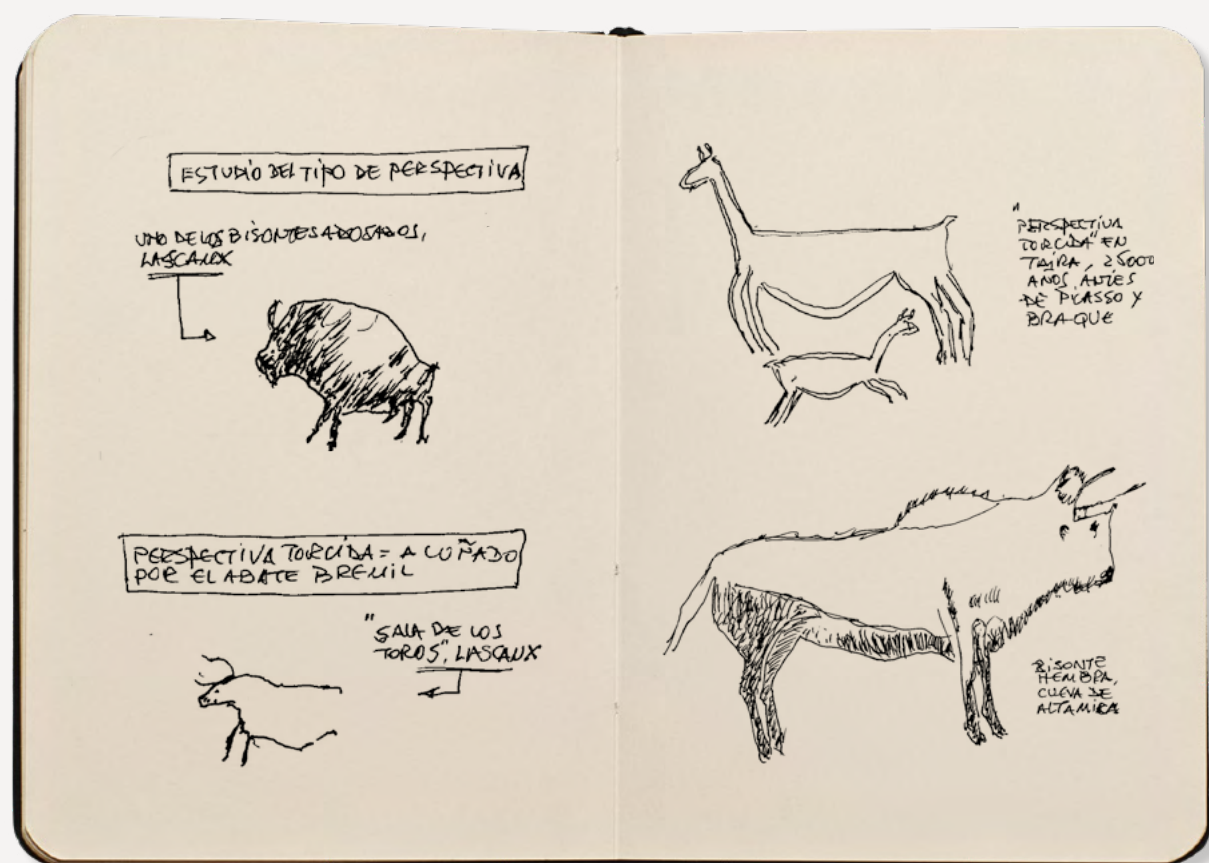 ESTUDIO DEL TIPO DE PERSPECTIVA
UNO DE LOS BISONTES ADOSADOS,
LASCAUX
PERSPECTIVA TORCIDA = ACUÑADO
POR EL ABATE BREUIL
"SALA DE LOS
TOROS", LASCAUX
"PERSPECTIVA
TORCIDA" EN
TAIRA, 25000
AÑOS ANTES
DE PICASSO Y
BRAQUE
BISONTE
HEMBRA,
CUEVA DE
ALTAMIRA